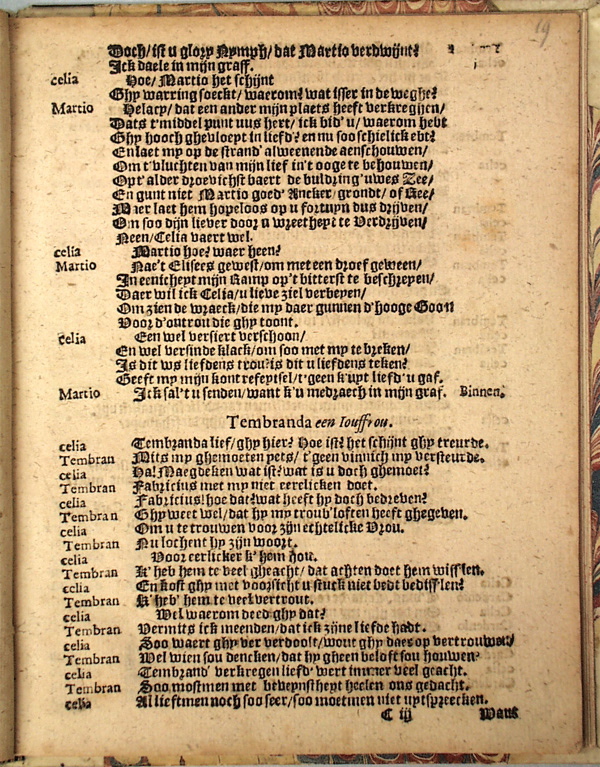 19
Doch/ ist u glory Nymph/ dat Martio verdwijnt?
Ick daele in mijn graff.
celia Hoe/ Martio het schijnt
Ghy warring soeckt/ waerom? wat isser in de weghe?
Martio Helacy/ dat een ander mijn plaets heeft verkregijen/
Dats t'middel punt uus hert/ ick bid' u/ waerom hebt
Ghy hooch ghevloept in liefd? en nu soo schielick ebt?
En laet my op de strand' alweenende aenschouwen/
Om t'vluchten van mijn lief in't ooge te behouwen/
Opt' alder droevichst baert de buldring' uwes Zee/
En gunt niet Martio goed' Ancker/ grondt/ of Ree/
Maer laet hem hopeloos op u fortuyn dus drijven/
Om soo dijn liever door u wreetheyt te Verdrijven/
Neen/ Celia vaert wel.
celia Martio hoe? waer heen?
Martio Nae't Elisees gewest/ om met een droef geween/
In eenicheyt mijn Ramp op't bitterst te beschreyen/
Daer wil ick Celia/ u lieve ziel verbeyen/
Om zien de wraeck/ die my daer gunnen d'hooge Goon
Voor d'ontrou die ghy toont.
celia Een wel versiert verschoon/
En wel versinde klack/ om soo met my te breken/
Is dit ws liefdens trou? is dit u liefdens teken?
Geeft my mijn kont refeytsel/ t'geen k'uyt liefd' u gaf.
Martio Ick sal't u senden/ want k'u medraech in mijn graf. Binnen.
Tembranda een Iouffrou.
celia Tembranda lief/ ghy hier? Hoe ist? het schijnt ghy treurde.
Tembran Mits my ghemoeten yets/ t'geen vinnich my versteurde.
celia Ha! Maegdeken wat ist? wat is u doch ghemoet?
Tembran Fabricius met my niet eerelicken doet.
celia Fabricius! hoe dat? wat heeft hy doch bedreven?
Tembran Ghy weet wel/ dat hy my troub'loften heeft ghegeven.
celia Om u te trouwen voor zijn echtelicke Vrou.
Tembran Nu lochent hy zijn woort.
celia Voor eerlicker k' hem hou.
Tembran K' heb hem te veel gheacht/ dat achten doet hem wiss'len.
celia En kost ghy met voorsicht u stuck niet bedt bediss'len?
Tembran K' heb' hem te veel vertrout.
celia Wel waerom deed ghy dat?
Tembran Vermits ick meenden/ dat ick zijne liefde hadt.
celia Soo waert ghy ver verdoolt/ wout ghy daer op vertrouwen/
Tembran Wel wien sou dencken/ dat hy gheen beloft sou houwen?
celia Tembrand' verkregen liefd' wert immer veel geacht.
Tembran Soo mostmen met beveynstheyt heelen ons gedacht.
celia Al lieftmen noch soo seer/ soo moetmen niet uytspreecken.
C iij Want